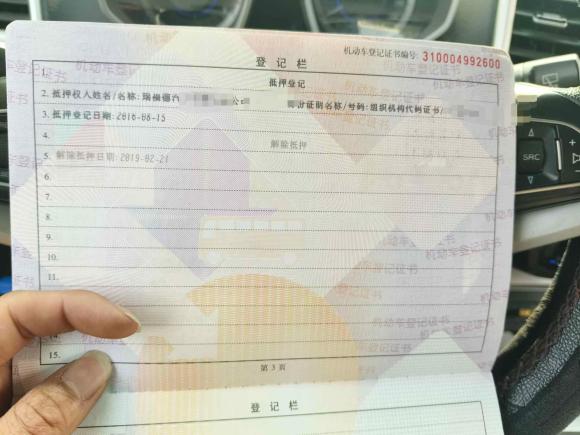 机动车登记证书编号: 310004992600
登记栏
1. 抵押登记
2. 抵押权人姓名/名称:瑞福德 公 身份证明名称/号码:组织机构代码证书/
3. 抵押登记日期:2016-08-15
4. 解除抵押
5. 解除抵押日期:2019-02-21
6.
7.
8.
9.
10.
11.
15.
第3页
登记栏
SRC
机动车登记证书